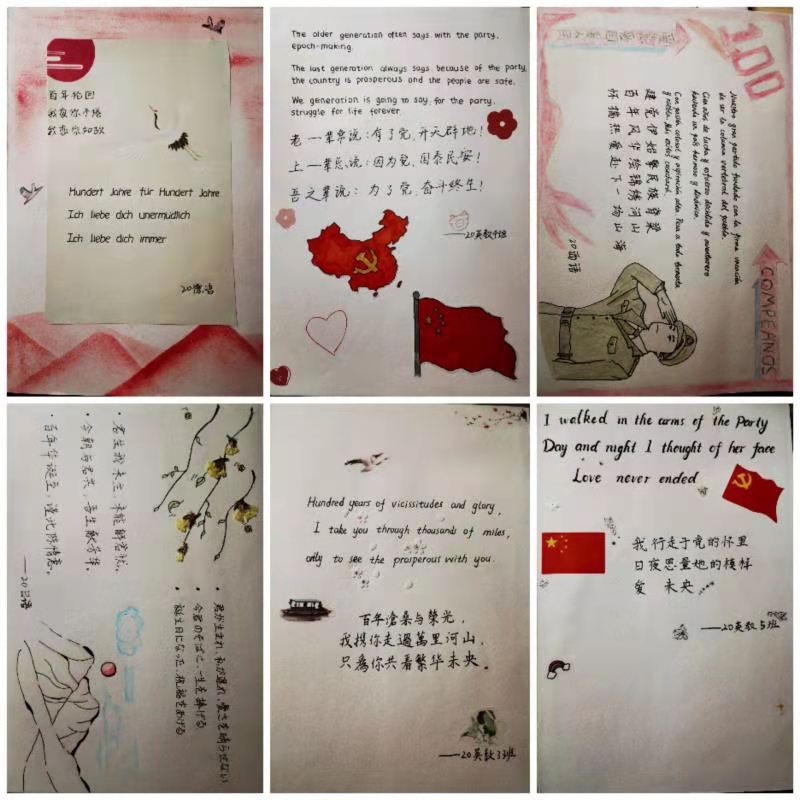 百年轮回
Hundert Jahre für Hundert Jahre
Ich liebe dich unermüdlich
Ich liebe dich immer
20德语
The older generation often says with the party,
epoch-making.
The last generation always says because of the party,
the country is prosperous and the people are safe.
We generation is going to say, for the party,
struggle for life forever.
老一辈常说：有了党，开天辟地！
上一辈总说：因为党，国泰民安！
吾之辈说：为了党，奋斗终生！
——20英教4班
100
Nuestro gran partido fundado con la firme vocación
de ser la columna vertebral del pueblo.
Cien años de lucha y esfuerzo decidido y aventurero
haciendo un país hermoso y dinámico.
Con pasión colosal y aspiración alta. Para a toda tormenta
y niebla, más éxitos cosechará.
建党伊始擎民族脊梁
百年风华绘锦绣河山
怀揣热爱赴下一场山海
20西语
COMPEANGS
·君生我未生，未能解君忧。
·今朝与君共，吾生献芳华。
·百年华诞至，谨此陈情意。
——20日语
·君が生まれ、私が遅れ、憂さを晴らせない
·今君のそばに、一生を捧げる
·誕生日になった、祝福をあげる
Hundred years of vicissitudes and glory,
I take you through thousands of miles,
only to see the prosperous with you.
百年滄桑与榮光，
我携你走過萬里河山，
只為你共看繁华未央。
——20英教3班
I walked in the arms of the Party
Day and night I thought of her face
Love never ended
我行走于党的怀里
日夜思量她的模样
爱 未央
——20英教5班